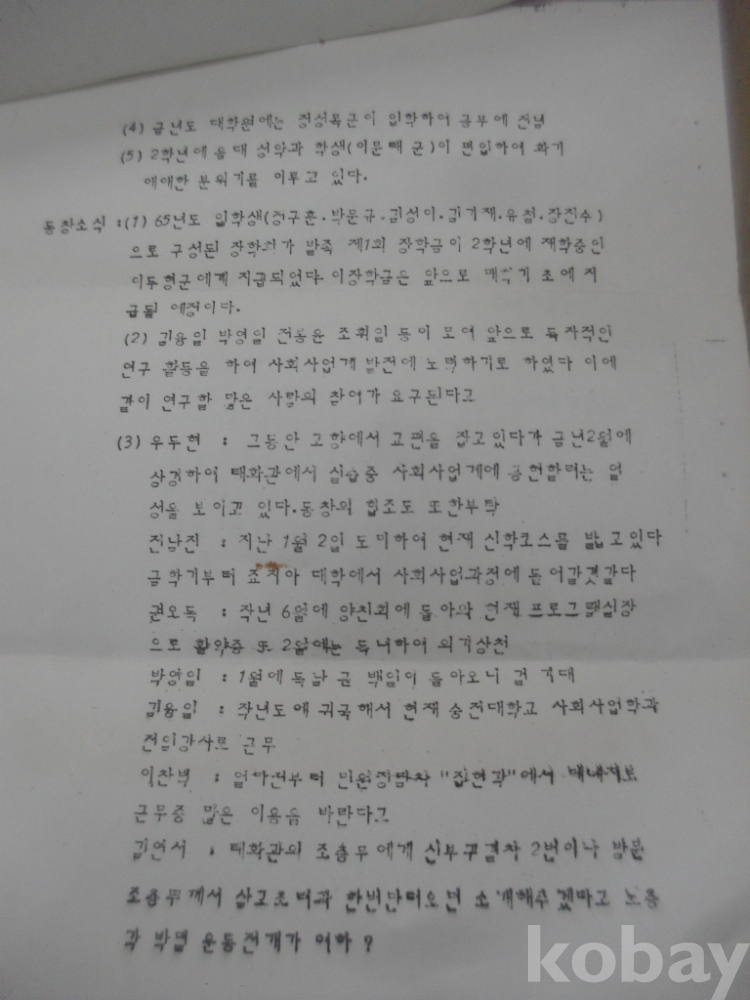 (4) 금년도 대학원에는 정성목군이 입학하여 공부에 전념
(5) 2학년에 음대 성악과 학생(이문배 군)이 편입하여 화기
애애한 분위기를 이루고 있다.
동창소식 : (1) 65년도 입학생(정구훈.박문규.김성이.김기재.유점.장진수)
으로 구성된 장학회가 발족 제1회 장학금이 2학년에 재학중인
이두형군에게 지급되었다 이장학금은 앞으로 매학기 초에 지
급될 예정이다.
(2) 김융일 박영일 전봉윤 조휘일 등이 모여 앞으로 독자적인
연구 활동을 하여 사회사업계 발전에 노력하기로 하였다 이에
같이 연구할 많은 사람의 참여가 요구된다고
(3) 우두현 : 그동안 고향에서 교편을 잡고있다가 금년2월에
상경하여 태화관에서 실습중 사회사업계에 공헌할려는 열
성을 보이고 있다.동창의 협조도 또한부탁
진남진 : 지난 1월 2일 도미하여 현재 신학코스를 밟고있다
금학기부터 죠지아 대학에서 사회사업과정에 들어갈것같다
권오득 : 작년 6월에 양친회에 돌아와 현재 프로그램실장
으로 활약중 또 2월에는 득녀하여 의기상천
박영일 : 1월에 득남 곧 백일이 돌아오니 겁 기대
김융일 : 작년도에 귀국해서 현재 숭전대학교 사회사업학과
전임강사로 근무
이찬벽 : 얼마전부터 민원정담차 "집현각"에서
근무중 많은 이용을 바란다고
김연서 : 태화관의 조총무에게 신부구걸차 2번이나 방문
조총무께서 삼고초려과 한번만더오면 소개해주겠마고 노총
각 박멸 운동전개가 여하 ?
kobay